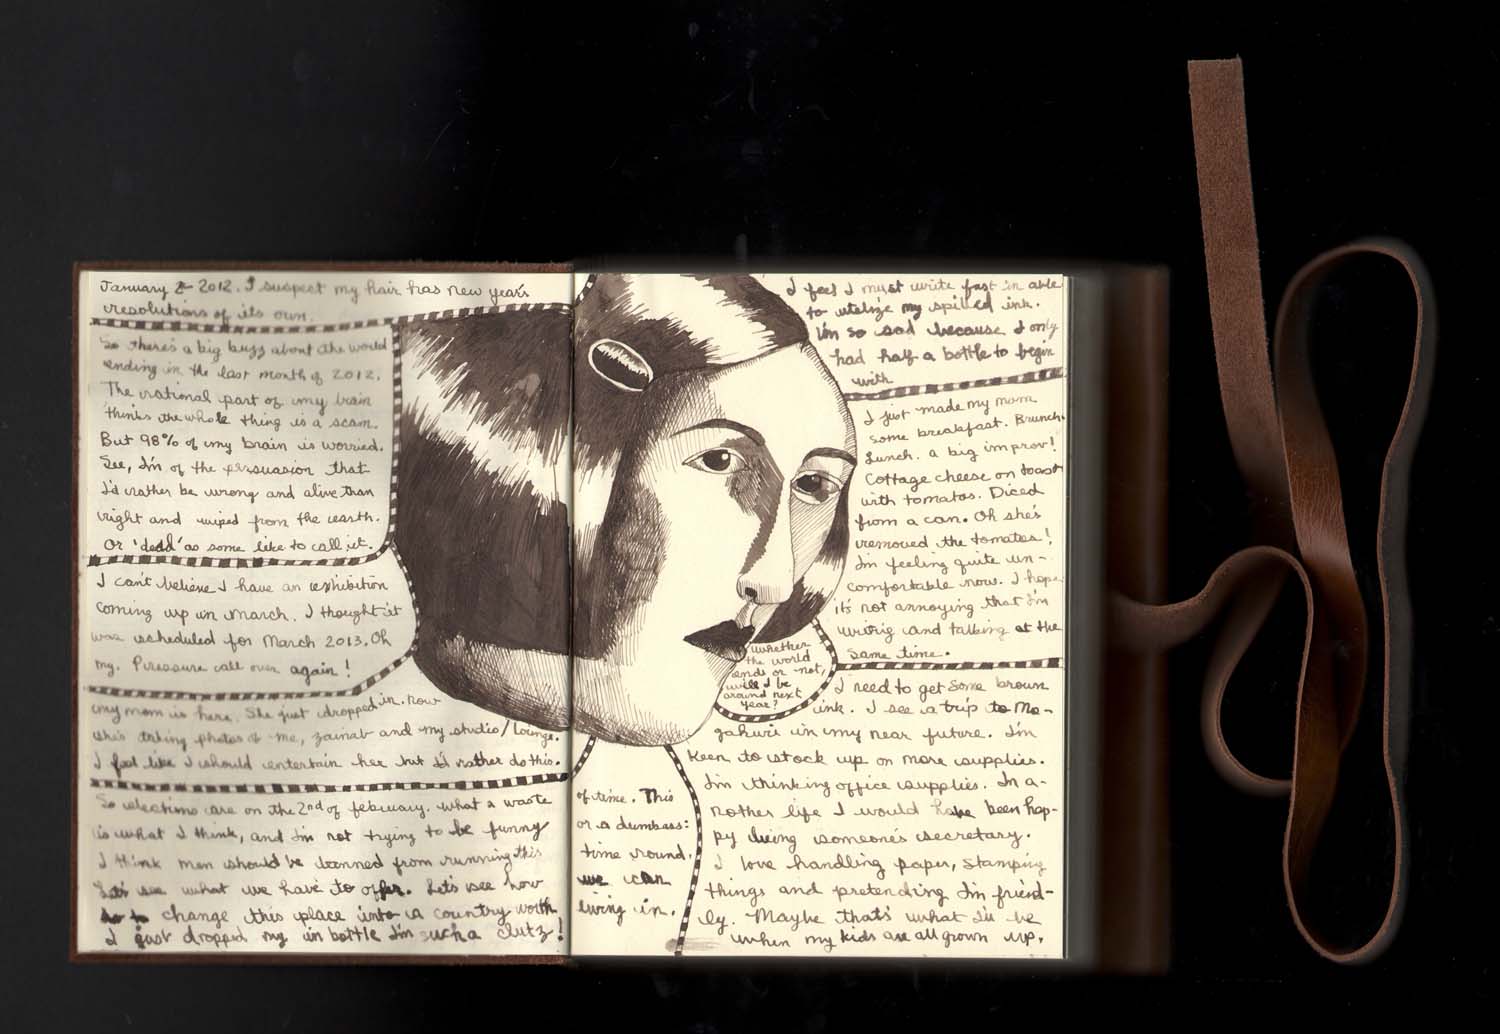 January 2 2012. I suspect my hair has new year's
resolutions of its own.
So there's a big buzz about the world
ending in the last month of 2012.
The rational part of my brain
thinks the whole thing is a scam.
But 98% of my brain is worried.
See, I'm of the persuasion that
I'd rather be wrong and alive than
right and wiped from the earth.
Or 'dead' as some like to call it.
I can't believe I have an exhibition
coming up in March. I thought it
was scheduled for March 2013. Oh
my. Pressure call over again!
my mom is here. She just dropped in. now
she's taking photos of me, zainab and my studio/lounge.
I feel like I should entertain her but I'd rather do this.
So elections are on the 2nd of february. What a waste
of time. This
is what I think, and I'm not trying to be funny
or a dumbass:
I think men should be banned from running this
time round.
Let's see what we have to offer. Let's see how
we can
change this place into a country worth
living in.
I just dropped my ink bottle I'm such a clutz!
I feel I must write fast in able
to utalize my spilled ink.
I'm so sad because I only
had half a bottle to begin
with
I just made my mom
some breakfast. Brunch.
Lunch. a big improv!
Cottage cheese on toast
with tomatos. Diced
from a can. Oh she's
removed the tomatos!
I'm feeling quite un-
comfortable now. I hope
it's not annoying that I'm
writing and talking at the
same time.
whether
the world
ends or not,
will I be
around next
year?
I need to get some brown
ink. I see a trip to Mo-
gahwi in my near future. I'm
keen to stock up on more supplies.
I'm thinking office supplies. In a-
nother life I would have been hap-
py being someone's secretary.
I love handling paper, stamping
things and pretending I'm friend-
ly. Maybe that's what I'll be
when my kids are all grown up.